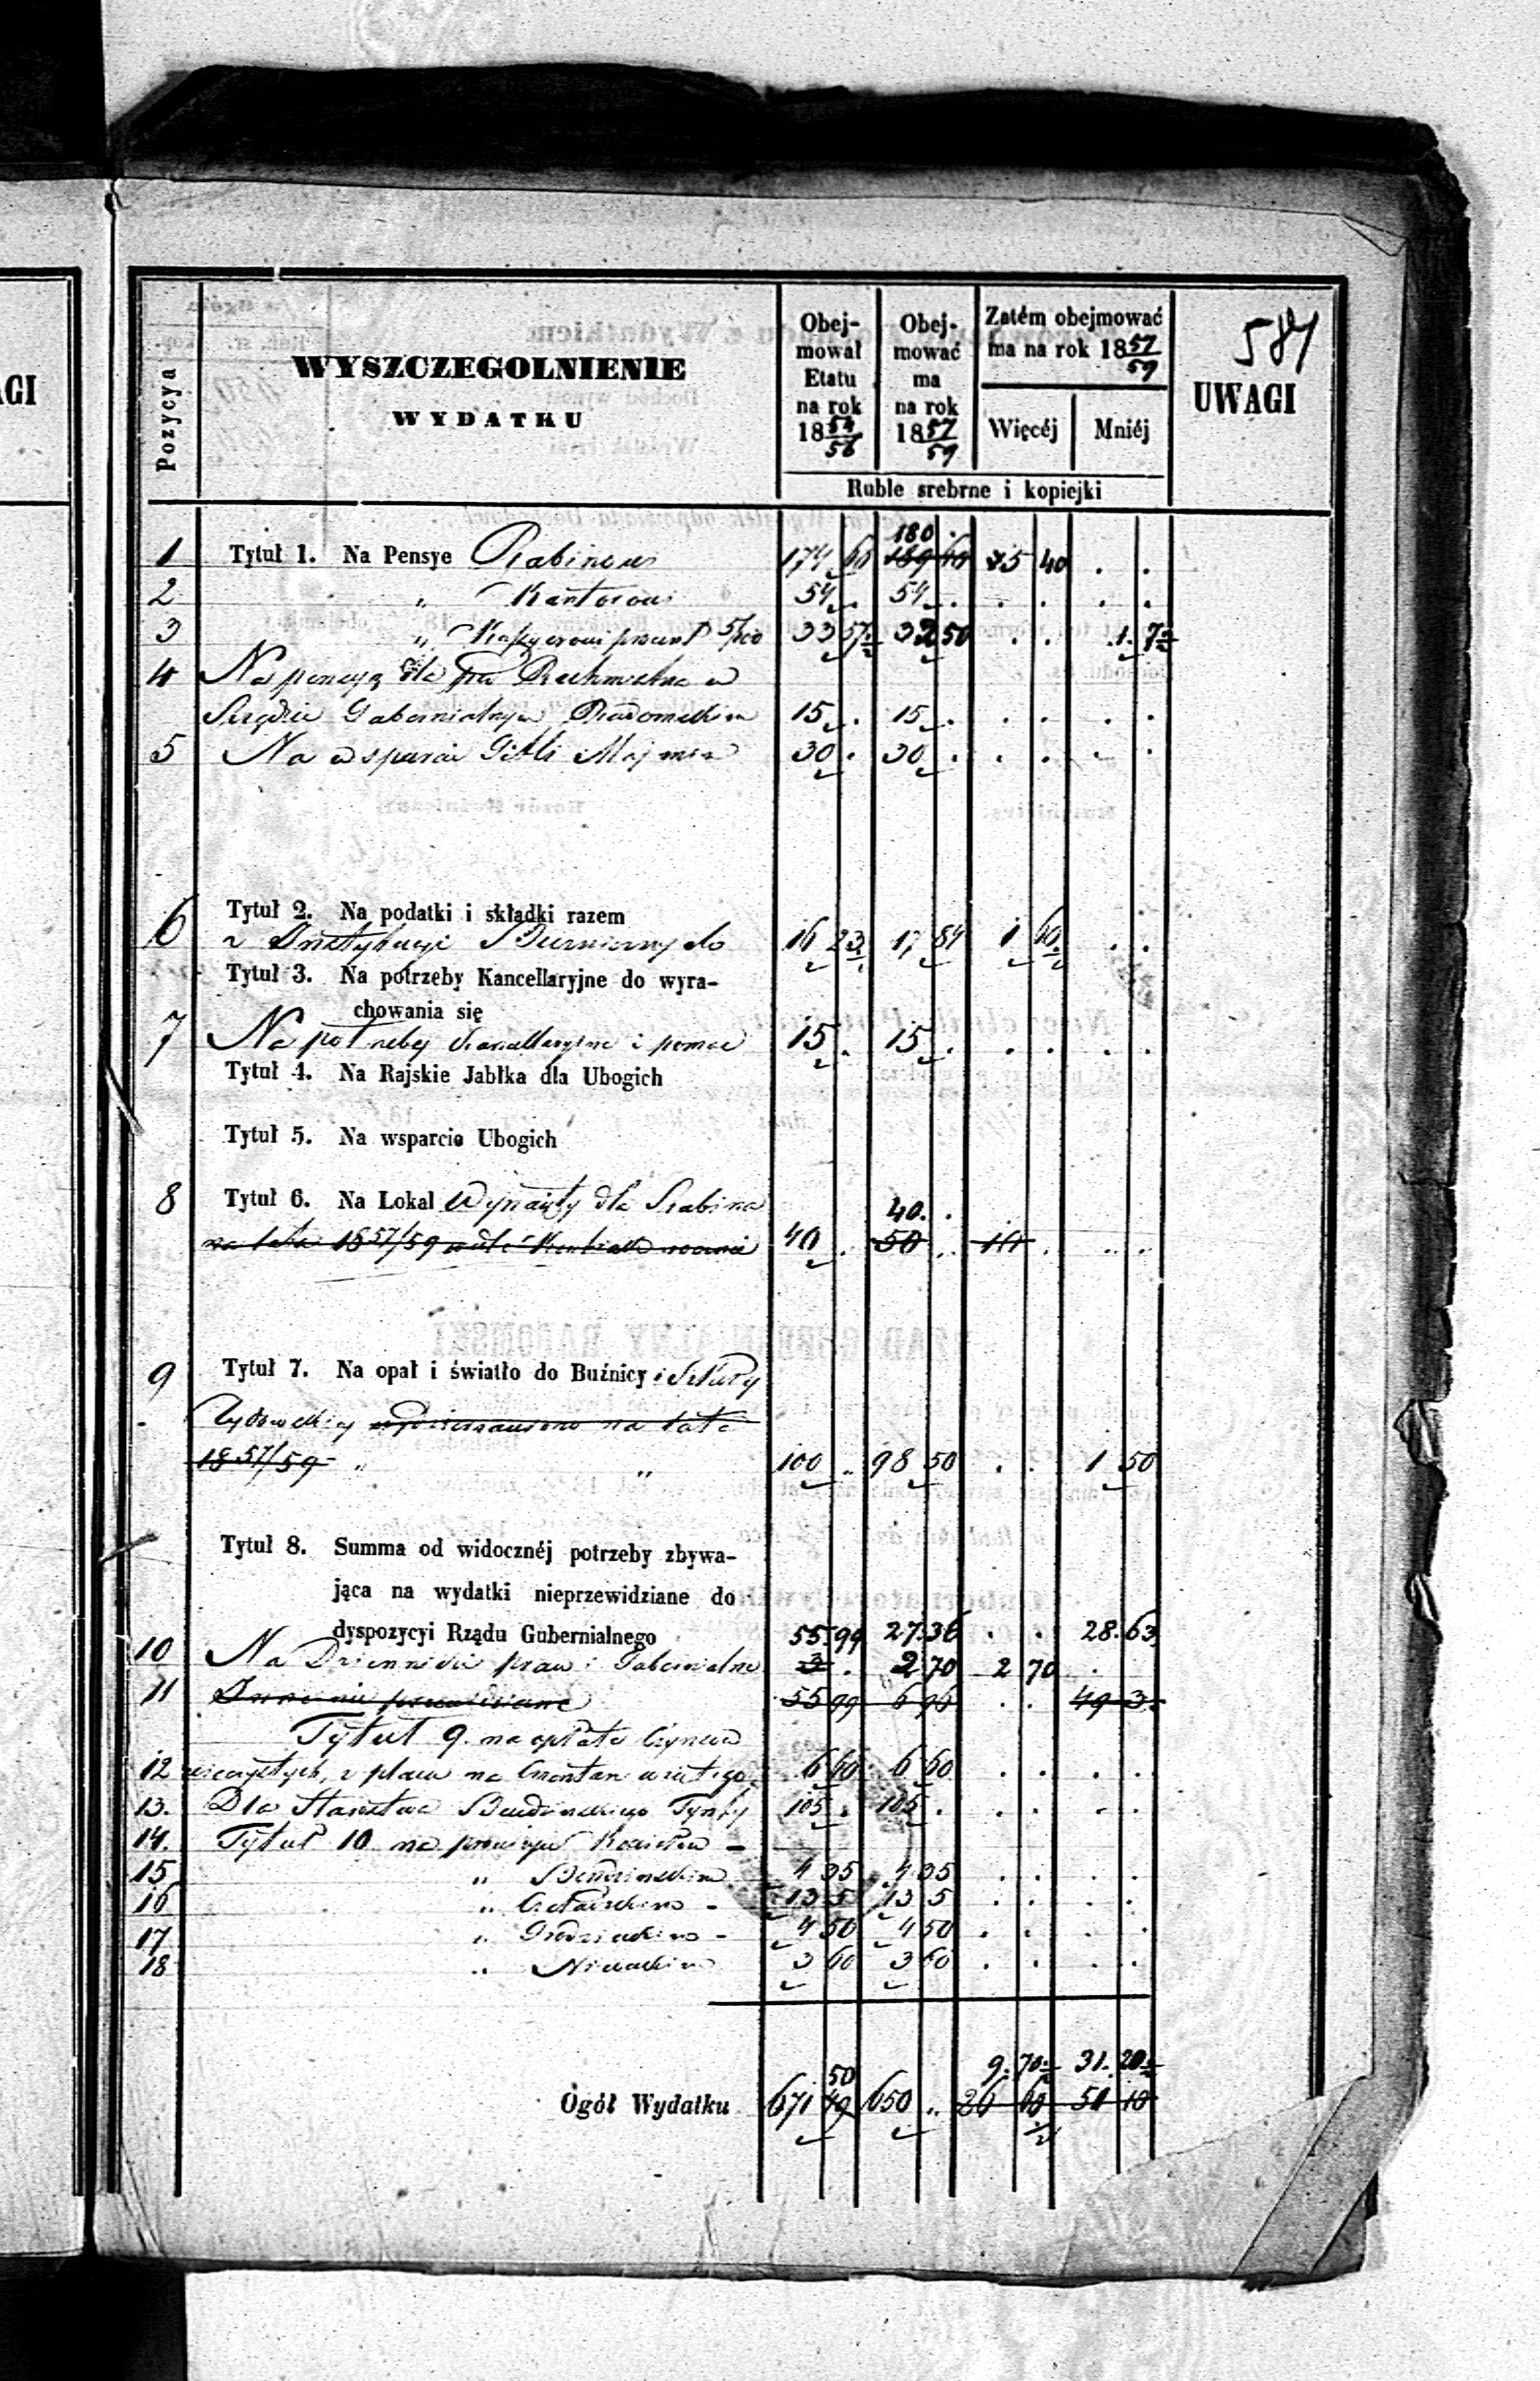 AGI
584
Pozycya
WYSZCZEGOLNIENIE
WYDATKU
Obej-
mował
Etatu
na rok
18 54/56
Obej-
mować
ma
na rok
18 57/59
Zatém obejmować
ma na rok 18 57/59
Więcéj
Mniéj
UWAGI
Ruble srebrne i kopiejki
180 .
1 Tytuł 1. Na Pensye Rabinowi 174 60 189 60 5 40 . .
2 " Kantorowi 54 . 54 . . . . .
3 " Kassyerowi procent 5/100 33 57 32 50 . . 1. 7
4 Na pensyą dla Rachmistrza w
Rządzie Gubernialnym Radomskim 15 . 15 . . . . .
5 Na wsparcie Gitli Majmon 30 . 30 . . . . .
Tytuł 2. Na podatki i składki razem
6 z 16 23 17 84 1 60 . .
Tytuł 3. Na potrzeby Kancellaryjne do wyra-
chowania się
7 Na potrzeby Kancellaryjne i pomoc 15 . 15 . . . . .
Tytuł 4. Na Rajskie Jabłka dla Ubogich
Tytuł 5. Na wsparcie Ubogich
8 Tytuł 6. Na Lokal Wynajęty dla Rabina 40. .
na lata 1857/59 40 . 50 . 10 . . .
9 Tytuł 7. Na opał i światło do Buźnicy i Szkoły
Żydowskiej na lata
1857/59 " " 100 . 98 50 . . 1 50
Tytuł 8. Summa od widocznéj potrzeby zbywa-
jąca na wydatki nieprzewidziane do
dyspozycyi Rządu Gubernialnego 55.99 27.36 . . 28.63
10 Na Dzienniki praw i Gubernialne 3 . 2 70 2 70 .
11 Inne nieprzewidziane 55 99 6 96 . . 49 3
Tytuł 9. na opłatę Czynszu
12 wieczystych, z placu na Cmentarz 6 60 6 60 . . . .
13. Dla Starostwa 105 . 105 . . . . .
14. Tytuł 10 na
15 " Bendzinskim 4 35 4 35 . . . .
16 " 13 5 13 5 . . . .
17 " 4 50 4 50 . . . .
18 " 3 60 3 60 . . . .
50 9.70 31.20
Ogół Wydatku 671 49 650 .. 26 60 51 10